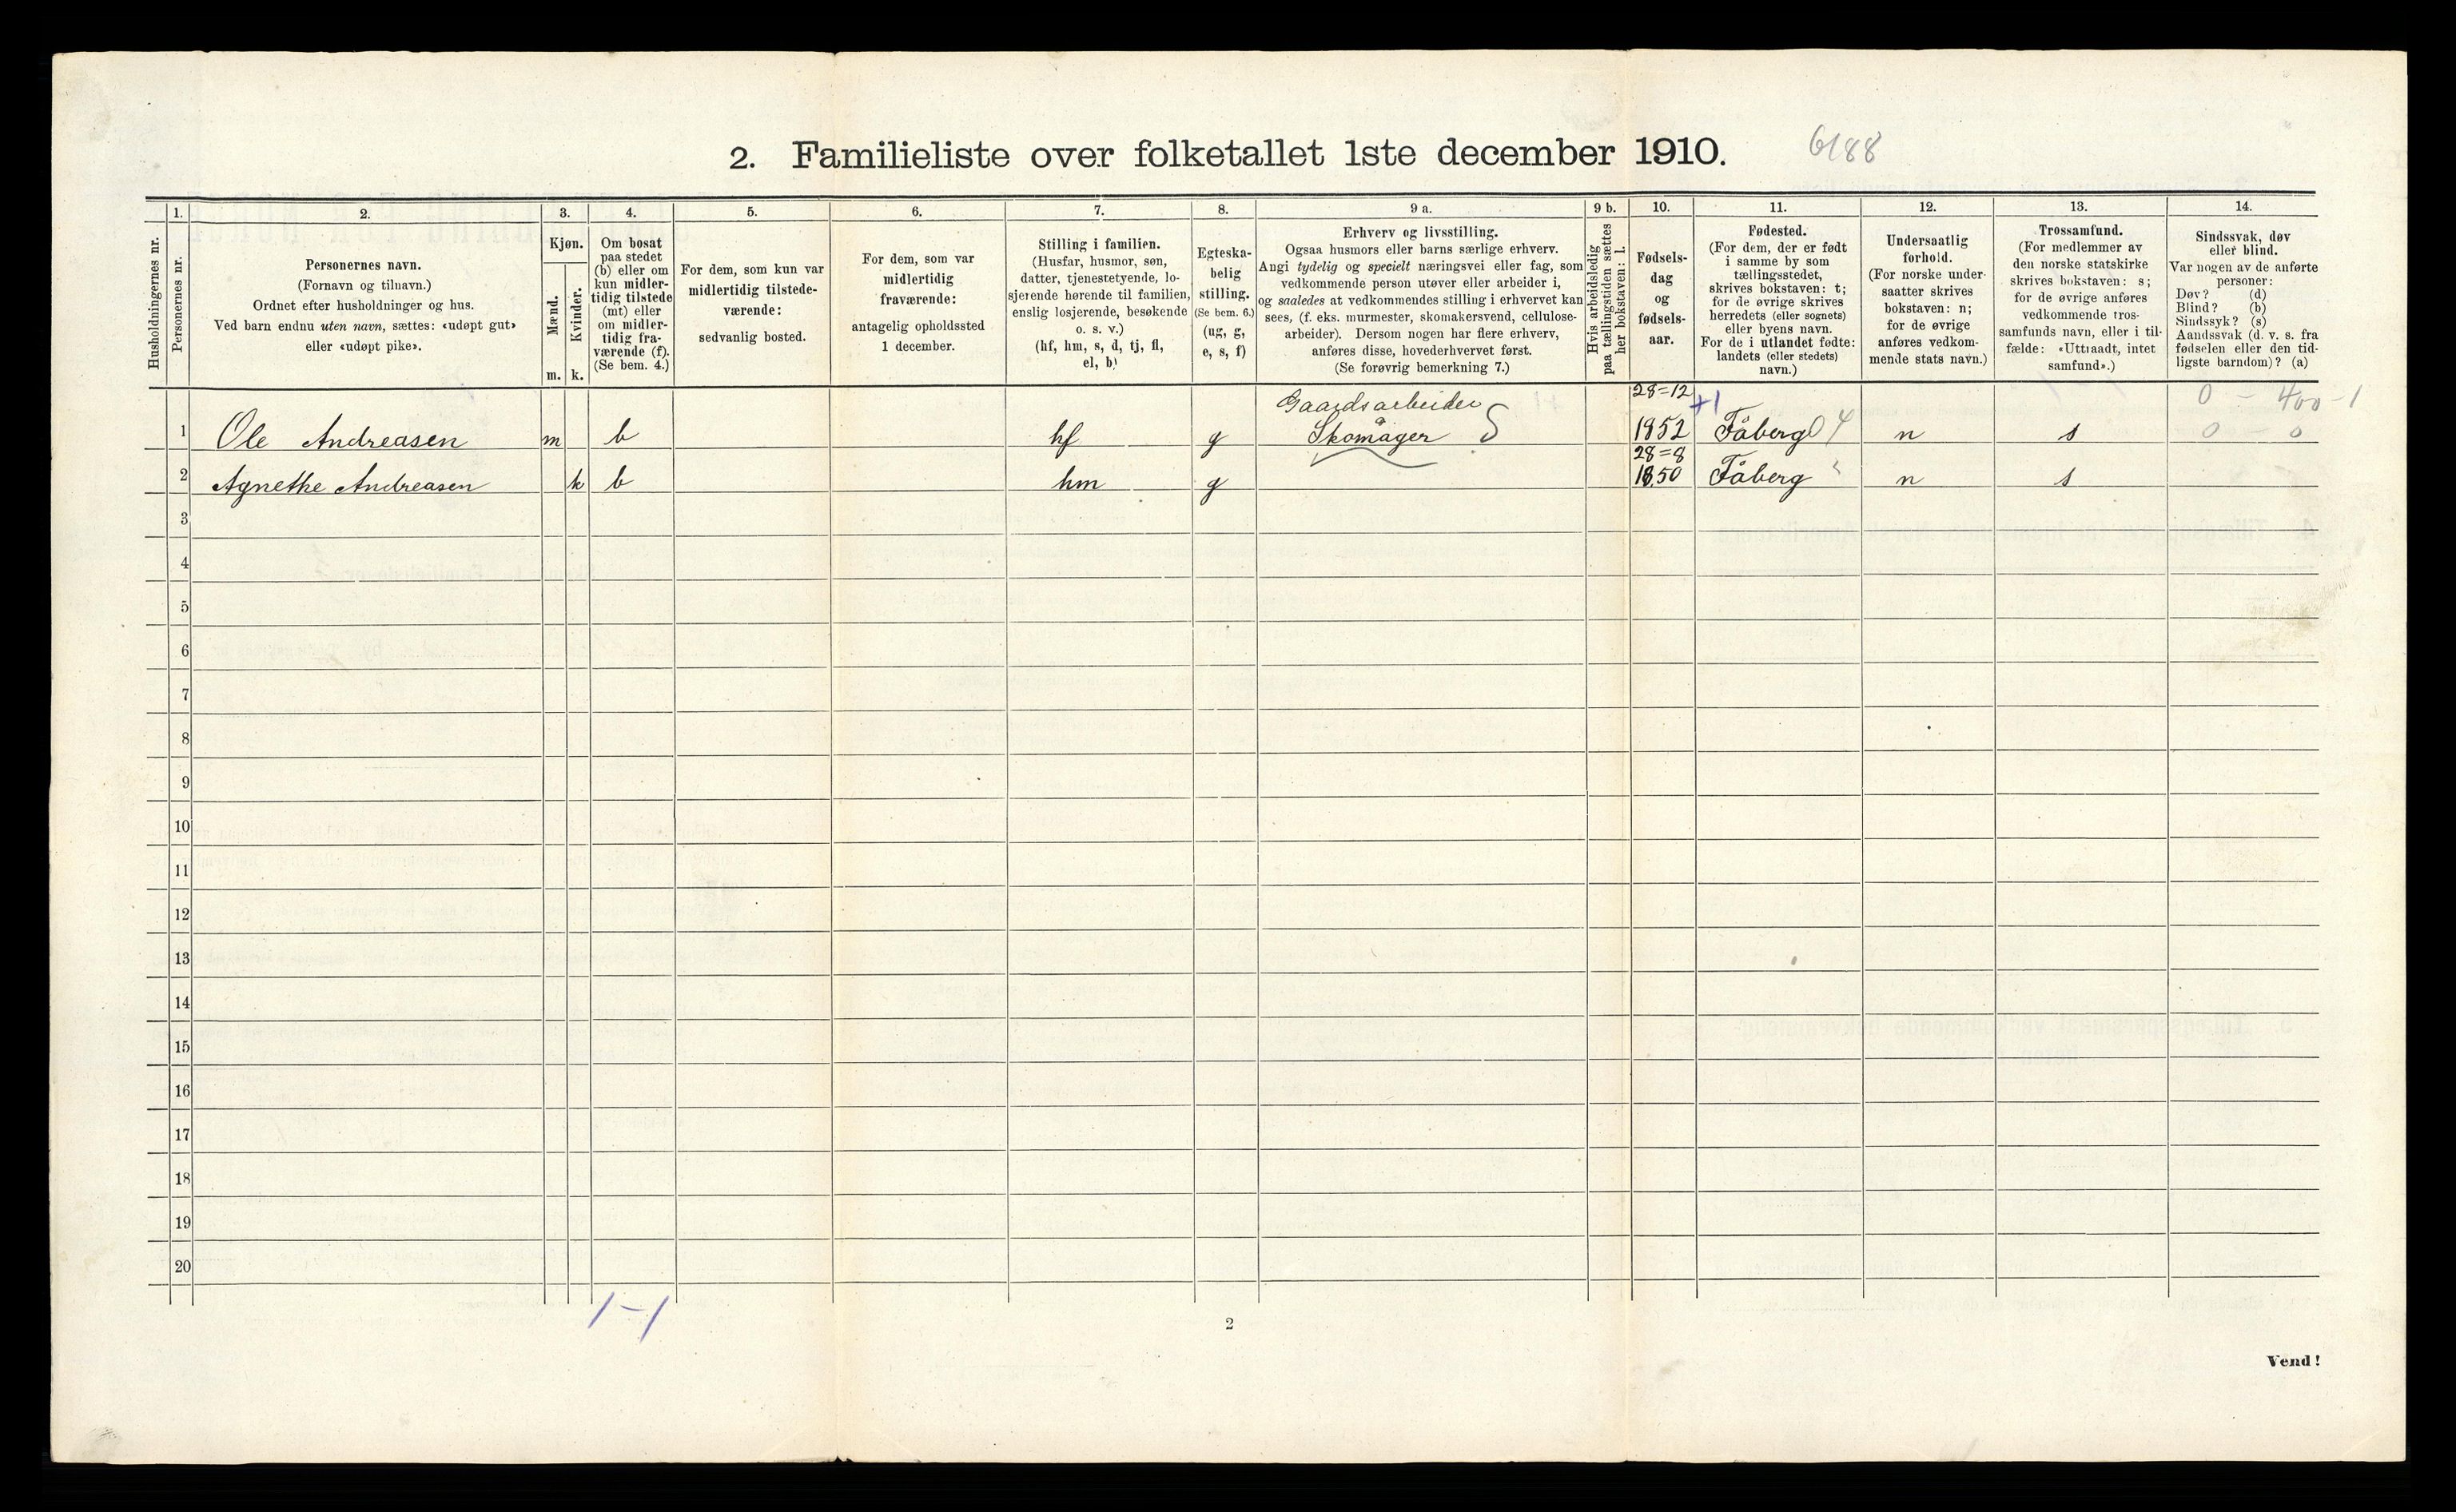 2. Familieliste over folketallet 1ste december 1910. 6188
Husholdningernes nr.
1.
Personernes nr.
2.
Personernes navn.
(Fornavn og tilnavn.)
Ordnet efter husholdninger og hus.
Ved barn endnu uten navn, sættes: «udøpt gut»
eller «udøpt pike».
3.
Kjøn.
Mænd.
Kvinder.
m. k.
4.
Om bosat
paa stedet
(b) eller om
kun midler-
tidig tilstede
(mt) eller
om midler-
tidig fra-
værende (f).
(Se bem. 4.)
5.
For dem, som kun var
midlertidig tilstede-
værende:
sedvanlig bosted.
6.
For dem, som var
midlertidig
fraværende:
antagelig opholdssted
1 december.
7.
Stilling i familien.
(Husfar, husmor, søn,
datter, tjenestetyende, lo-
sjerende hørende til familien,
enslig losjerende, besøkende
o. s. v.)
(hf, hm, s, d, tj, fl,
el, b)
8.
Egteska-
belig
stilling.
(Se bem. 6.)
(ug, g,
e, s, f)
9 a.
Erhverv og livsstilling.
Ogsaa husmors eller barns særlige erhverv.
Angi tydelig og specielt næringsvei eller fag, som
vedkommende person utøver eller arbeider i,
og saaledes at vedkommendes stilling i erhvervet kan
sees, (f. eks. murmester, skomakersvend, cellulose-
arbeider). Dersom nogen har flere erhverv,
anføres disse, hovederhvervet først.
(Se forøvrig bemerkning 7.)
9 b.
Hvis arbeidsledig
paa tællingstiden sættes
her bokstaven: l.
10.
Fødsels-
dag
og
fødsels-
aar.
11.
Fødested.
(For dem, der er født
i samme by som
tællingsstedet,
skrives bokstaven: t;
for de øvrige skrives
herredets (eller sognets)
eller byens navn.
For de i utlandet fødte:
landets (eller stedets)
navn.)
12.
Undersaatlig
forhold.
(For norske under-
saatter skrives
bokstaven: n;
for de øvrige
anføres vedkom-
mende stats navn.)
13.
Trossamfund.
(For medlemmer av
den norske statskirke
skrives bokstaven: s;
for de øvrige anføres
vedkommende tros-
samfunds navn, eller i til-
fælde: «Uttraadt, intet
samfund».)
14.
Sindssvak, døv
eller blind.
Var nogen av de anførte
personer:
Døv? (d)
Blind? (b)
Sindssyk? (s)
Aandssvak (d. v. s. fra
fødselen eller den tid-
ligste barndom)? (a)
Gaardsarbeider 28=12 +1 0 - 400-1
1 Ole Andreasen m b hf g Skomåger 1852 Fåberg 04 n s 0 - 0
28=8
2 Agnethe Andreasen k b hm g 1850 Fåberg n s
3
4
5
6
7
8
9
10
11
12
13
14
15
16
17
18
19
20
1-1
2
Vend!